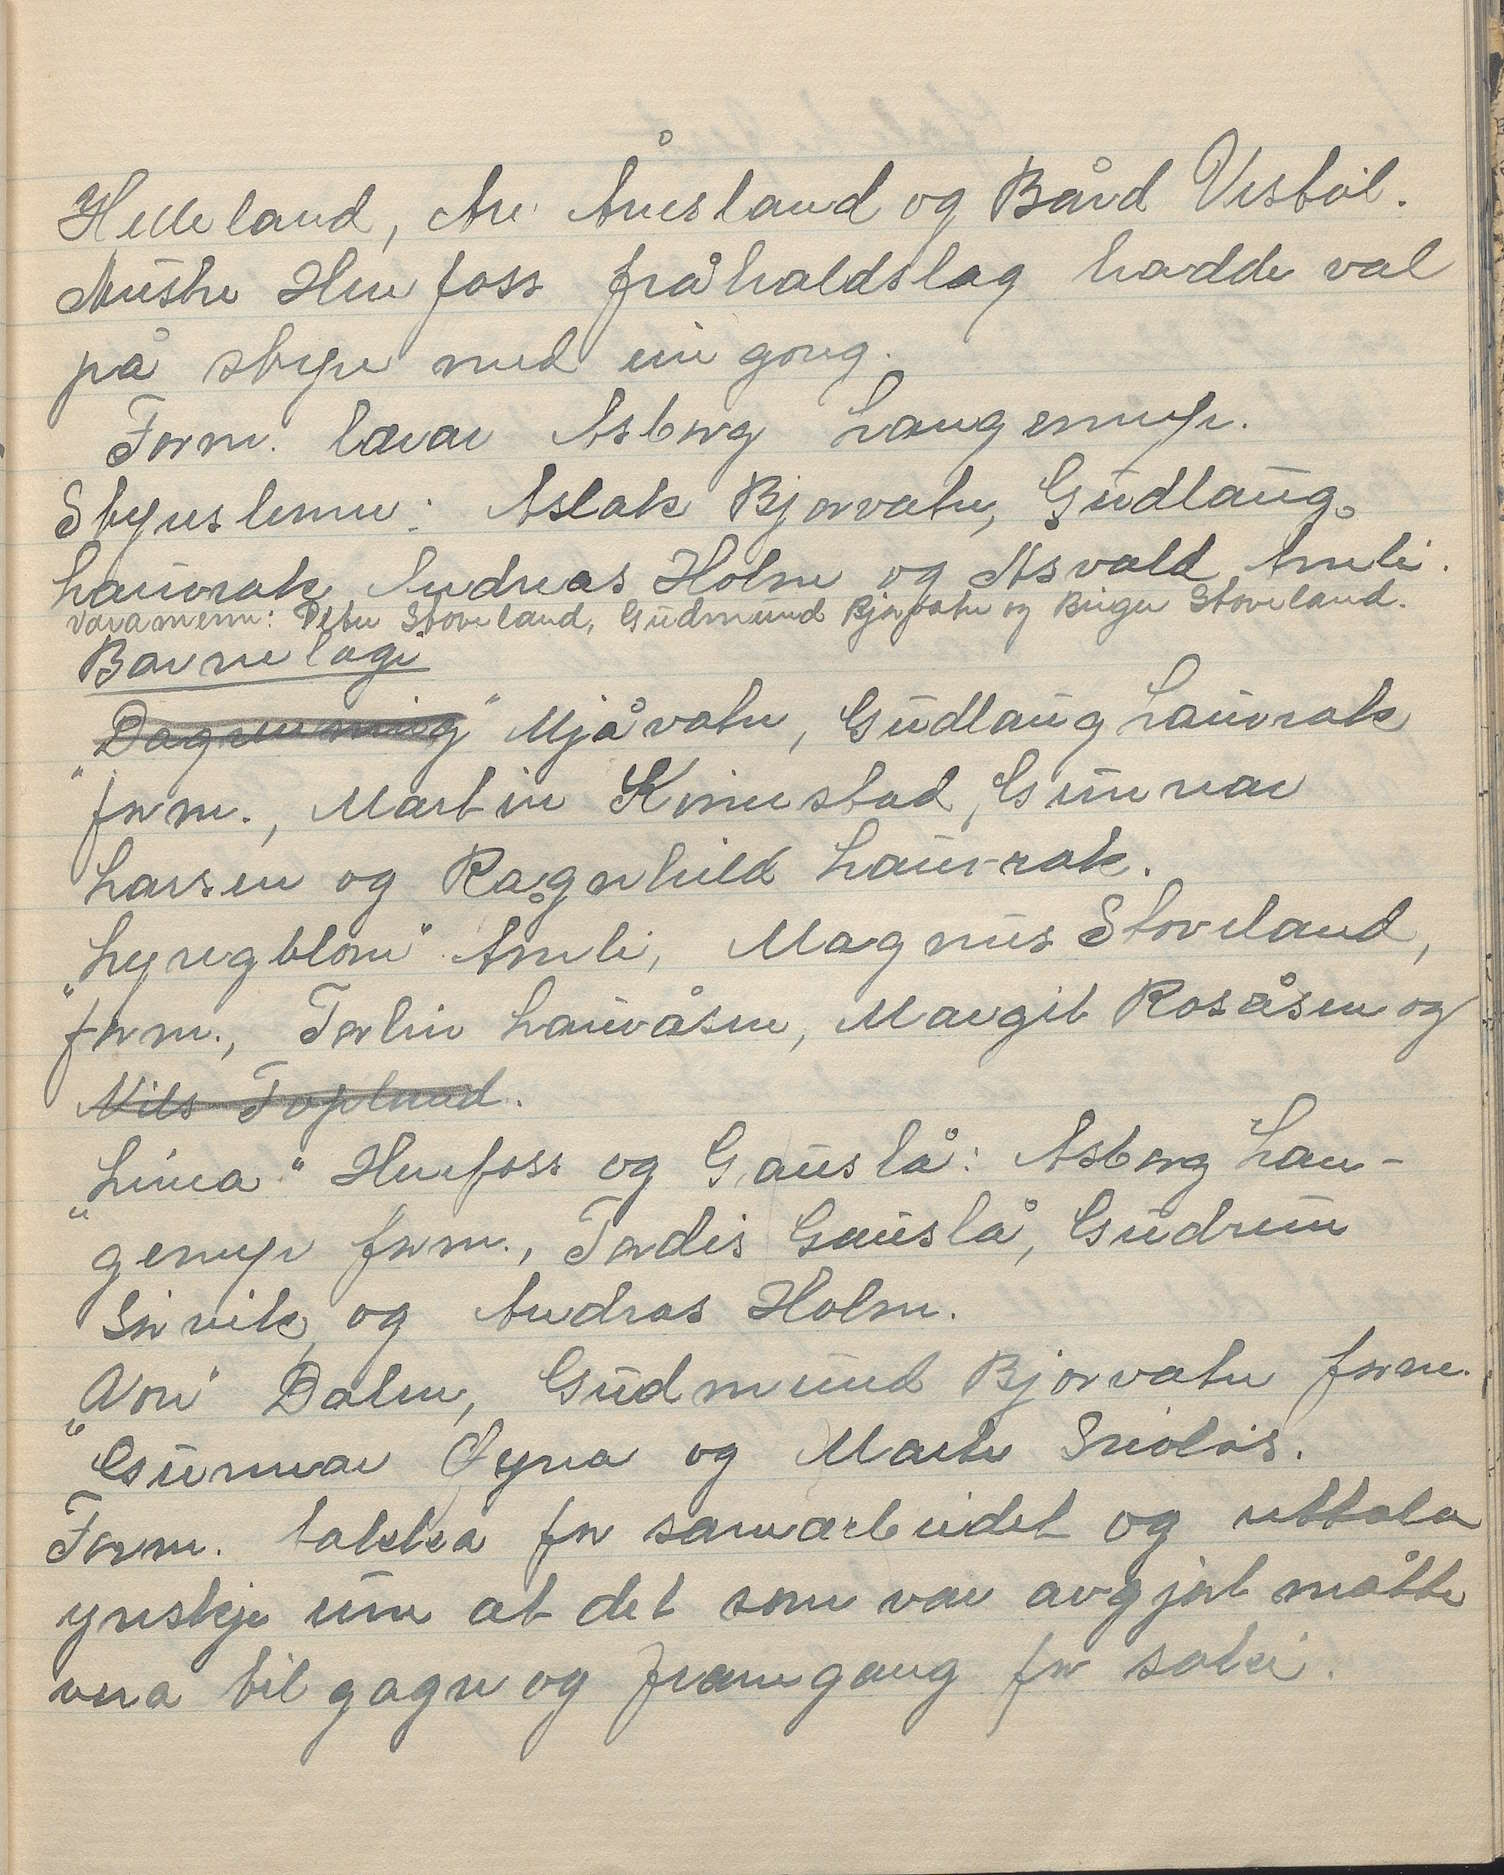 Helleland, Are Ånesland og Bård Vestøl.
Austre Herefoss fråhaldslag hadde val
på styre med ein gong.
Form. lærar Asborg Langemyr.
Styreslemer: Aslak Bjorvatn, Gudlaug
Lauvrak, Andreas Holm og Asvald Åmli.
Varamenn: Peter Stoveland, Gudmund Bjorvatn og Birger Stoveland.
Barnelagi
"Dagrenning" Mjåvatn, Gudlaug Lauvrak
form., Martin Kimestad, Gunnar
Larsen og Ragnhild Lauvrak.
"Lyngblom" Åmli, Magnus Stoveland,
form., Torlin Lauvåsen, Margit Rosåsen og
Nils Topland.
"Linea" Herefoss og Gauslå: Asborg Lan-
gemyr form., Tordis Gauslå, Gudrun
Sørvik og Andras Holm.
"Von" Dalen, Gudmund Bjorvatn form.
Gunnar Øyna og Marte
Form. takka for samarbeidet og uttala
ynskje um at det som var avgjort måtte
vera til gagn og framgang for saki.